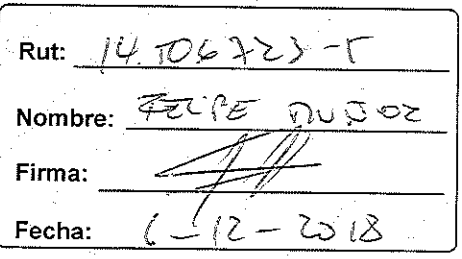 Rut: 14.706723-5
Nombre: FELIPE MUÑOZ
Firma:
Fecha: 6-12-2018